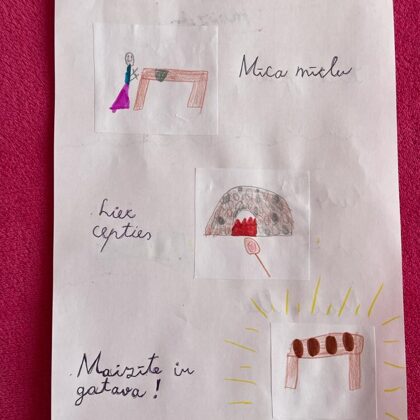 Mīca mīclu
Liek
cepties
Maizīte ir
gatava!